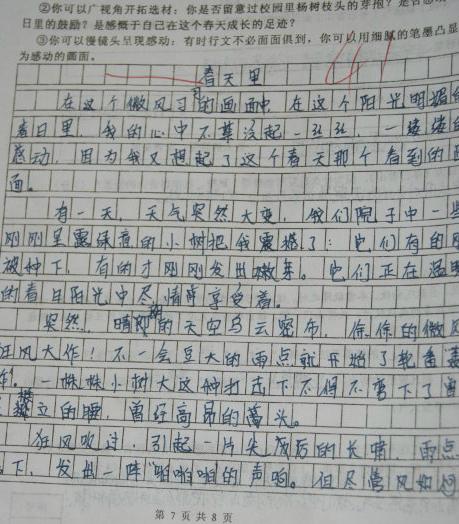 ②你可以广视角开拓选材：你是否留意过校园里杨树枝头的芽孢？是否感
日里的鼓励？是感慨于自己在这个春天成长的足迹？
③你可以慢镜头呈现感动：有时行文不必面面俱到，你可以用细腻的笔墨凸显
为感动的画面。
春天里
在这个微风习习的画面中，在这个阳光明媚的
春日里，我的心中不禁泛起一丝丝，一缕缕的
感动，因为我又想起了这个春天那个看到的画
面。
有一天，天气突然大变，我们院子中一些
刚刚呈露绿意的小树把我震撼了：它们有的刚
被种下，有的才刚刚发出嫩芽。它们正在温暖
的春日阳光中尽情享受着。
突然，晴朗的天空乌云密布，徐徐的微风
狂风大作！不一会豆大的雨点就开始了轮番轰
炸。一株株小树大这种打击下不得不弯下了曾
挺立的腰，曾经高昂的头。
狂风吹过，引起一片尖厉后的长啸，雨点
下，发出一阵“啪啪啪”的声响。但尽管风如何
第 7 页 共 8 页